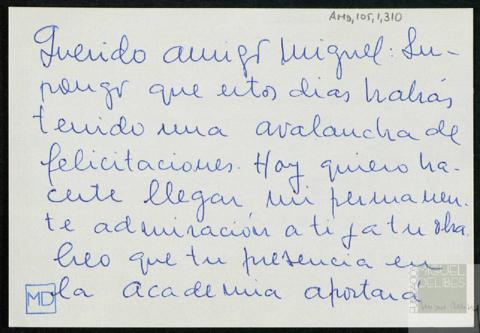 AMD, 105, 1, 310
Querido amigo Miguel: Su-
pongo que estos dias habrás
tenido una avalancha de
felicitaciones. Hoy quiero ha-
certe llegar mi permanen-
te admiración a ti y a tu obra.
Creo que tu presencia en
la Academia aportará
MD
FUNDACIÓN
MIGUEL
DELIBES